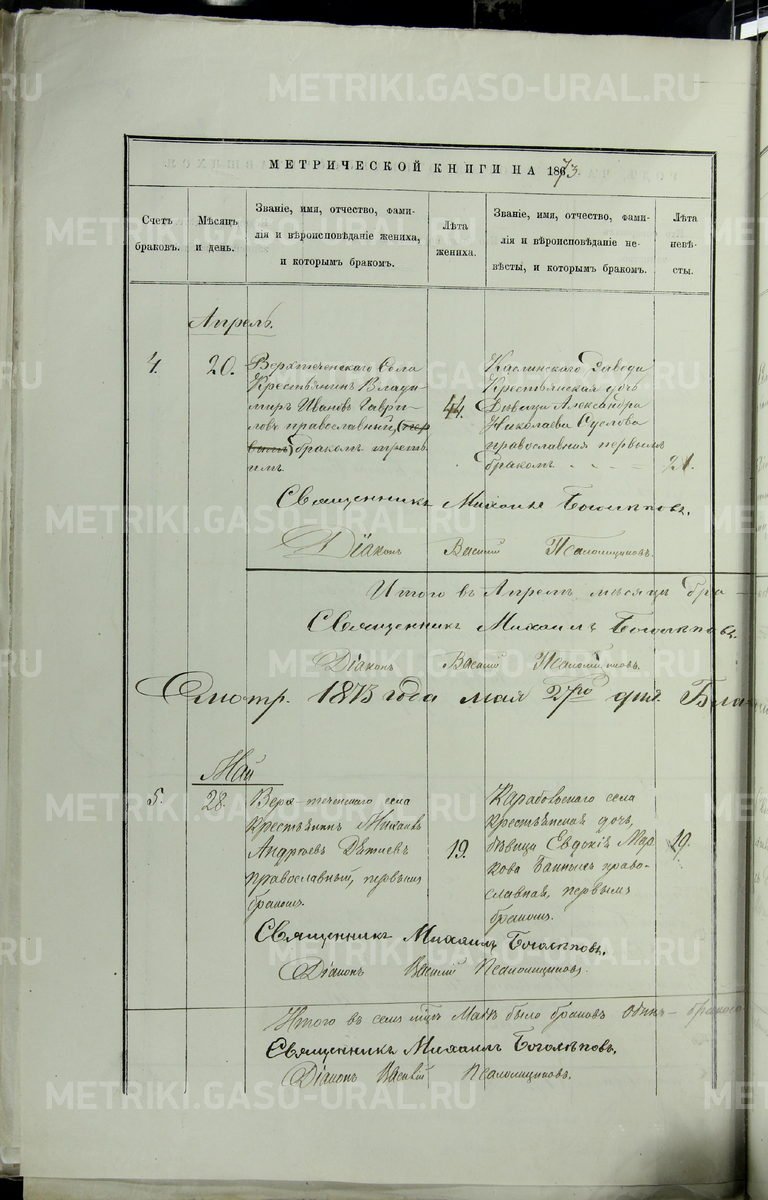 METRIKI.GASO-URAL.RU
МЕТРИЧЕСКОЙ КНИГИ НА 1873
Счетъ браковъ.
Мѣсяцъ и день.
Званіе, имя, отчество, фами-
лія и вѣроисповѣданіе жениха,
и которымъ бракомъ.
Лѣта жениха.
Званіе, имя, отчество, фами-
лія и вѣроисповѣданіе не-
вѣсты, и которымъ бракомъ.
Лѣта невѣ-
сты.
Апрель.
4.
20.
Верхтеченскаго Села
Крестьянинъ Влади-
миръ Ивановъ Гаври-
ловъ православный, (пер
вымъ) бракомъ треть-
имъ.
44.
Каслинскаго Завода
Крестьянская дочь
Дѣвица Александра
Николаева Суслова
православная первымъ
бракомъ
21.
Священникъ Михаилъ Боголѣповъ.
Діаконъ Василій Псаломщиковъ.
Итого въ Апрелѣ мѣсяцѣ бра-
Священникъ Михаилъ Боголѣповъ.
Діаконъ Василій Псаломщиковъ.
Смотр. 1873 года мая 27го дня. Бла
Май
5.
28.
Верх-теченскаго села
крестьянинъ Михаилъ
Андреевъ
православный, первымъ
бракомъ.
19.
села
крестьянская дочь,
дѣвица Евдокія Мар
кова право-
славная, первымъ
бракомъ.
19.
Священникъ Михаилъ Боголѣповъ.
Діаконъ Василій Псаломщиковъ.
Итого въ семъ Маѣ было браковъ одинъ —
Священникъ Михаилъ Боголѣповъ.
Діаконъ Василій Псаломщиковъ.